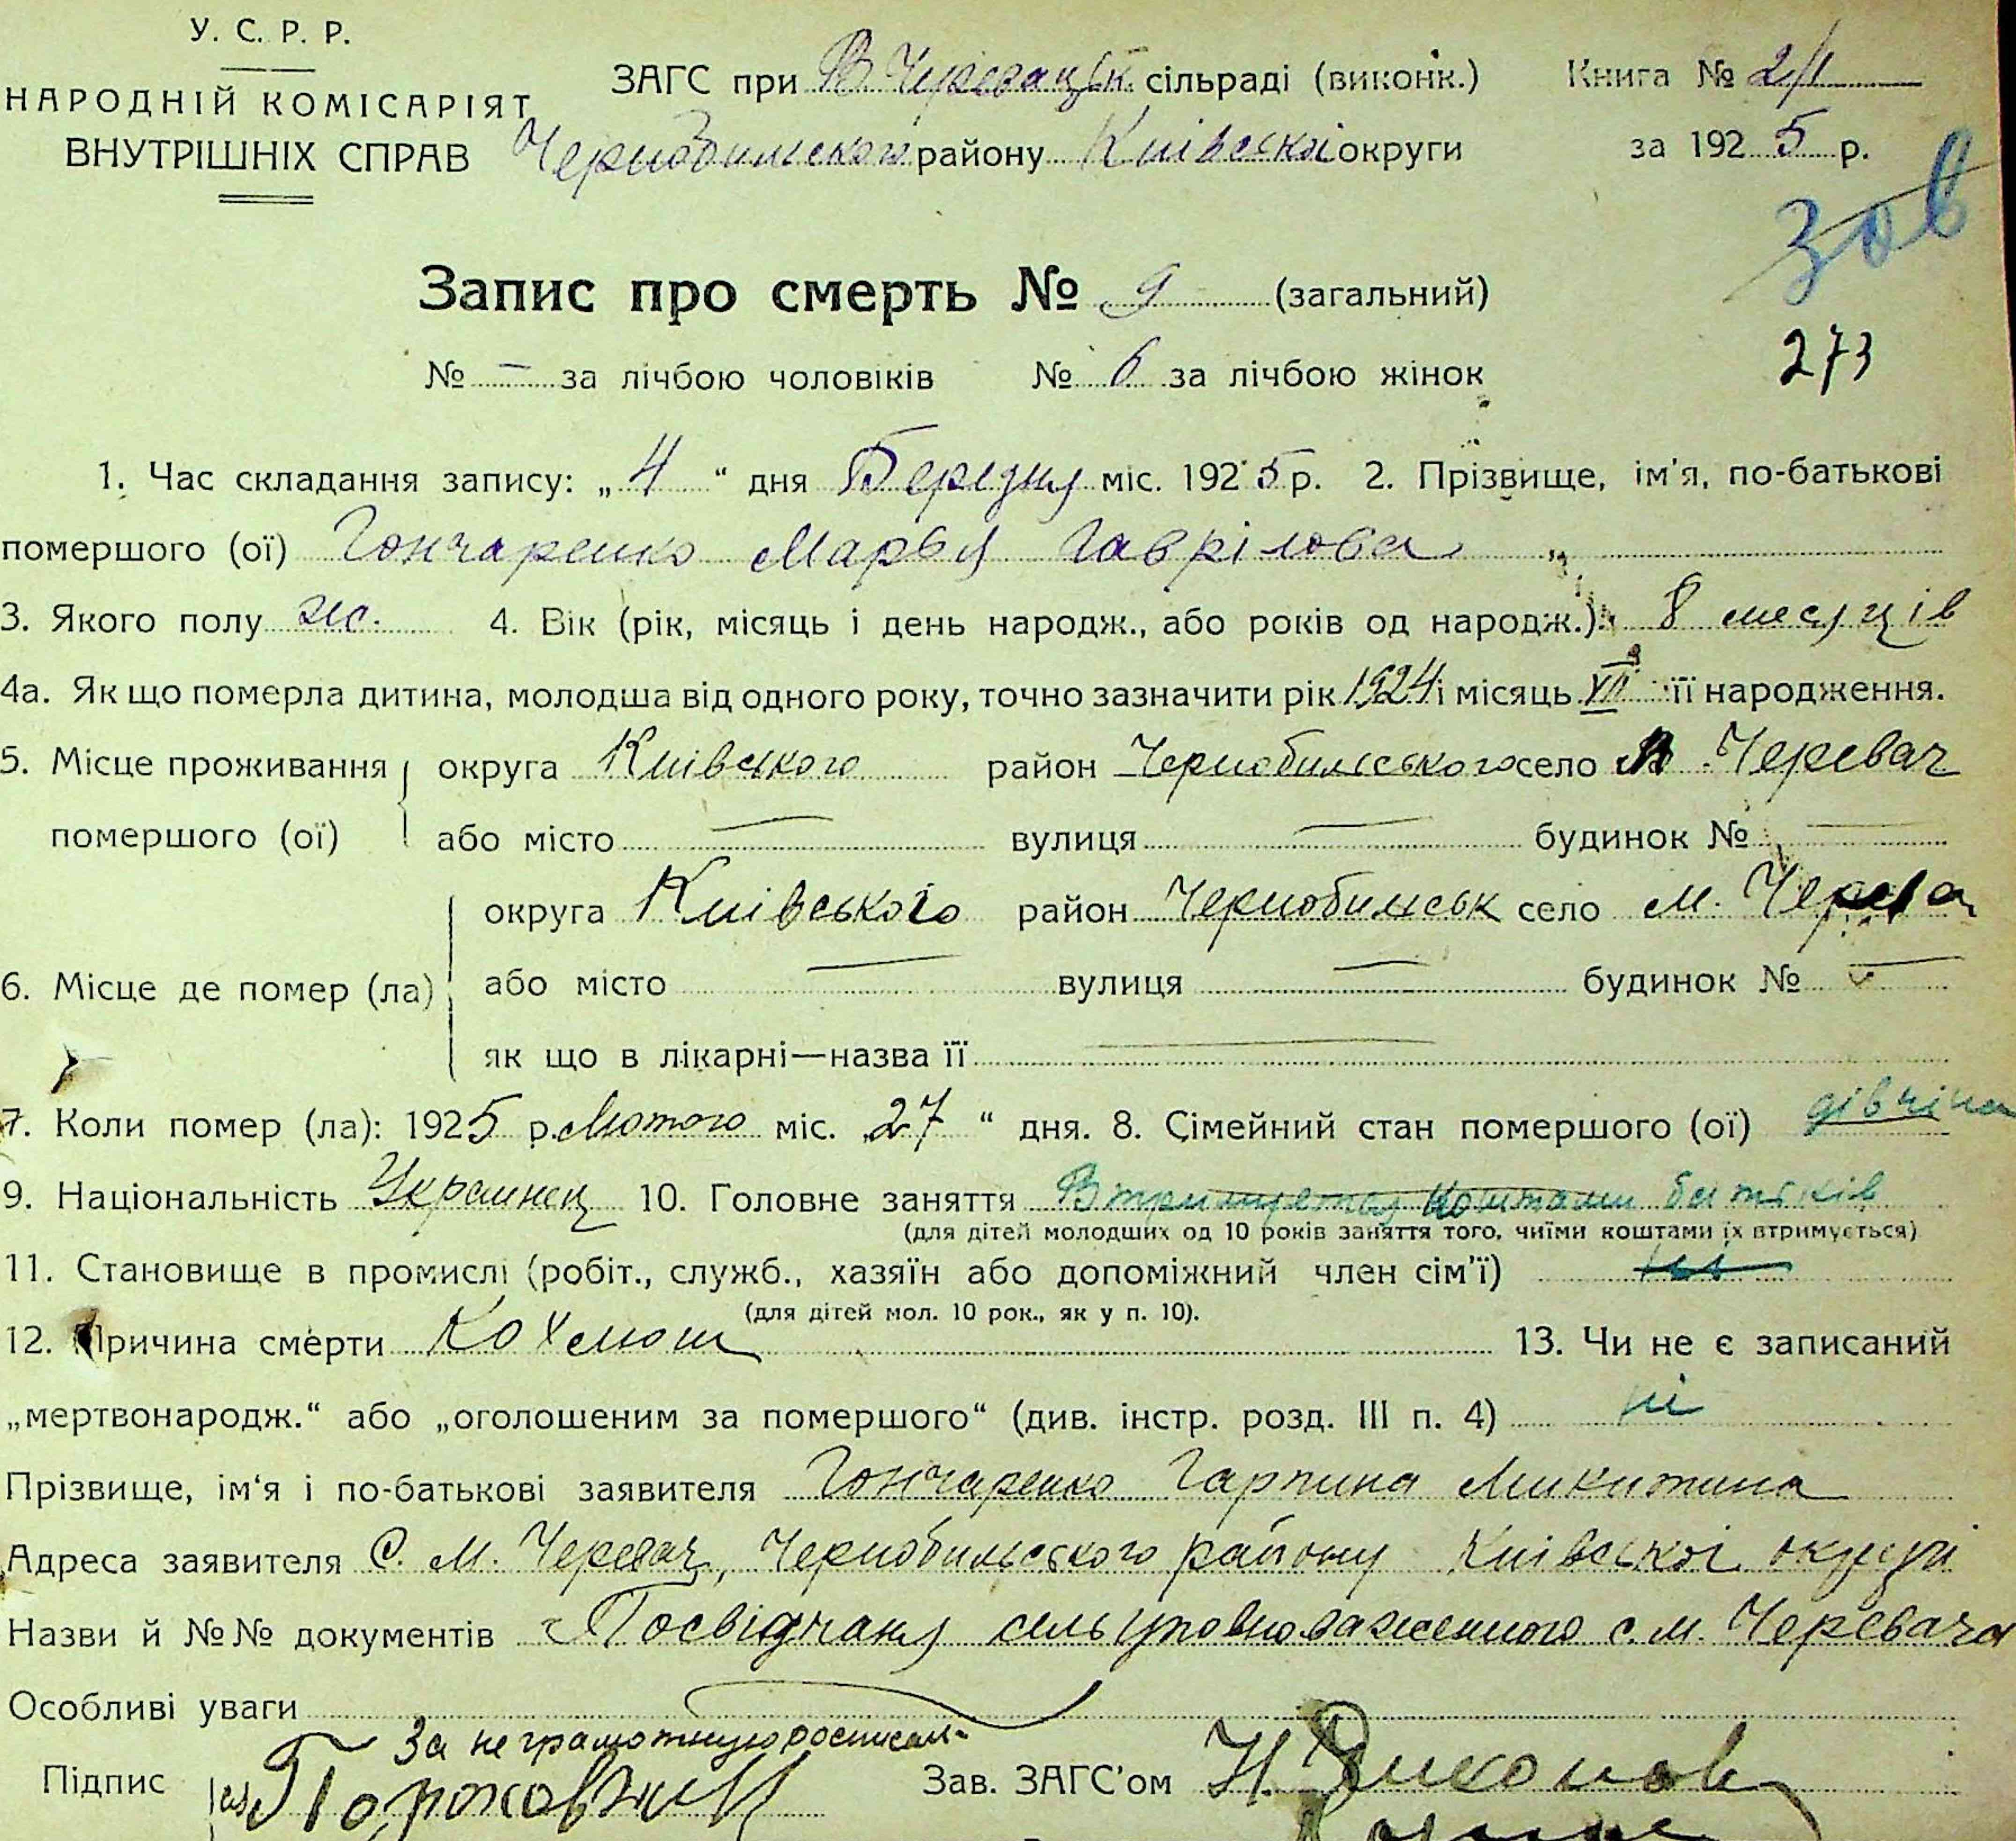 У. С. Р. Р.
НАРОДНІЙ КОМІСАРІЯТ
ВНУТРІШНІХ СПРАВ
ЗАГС при В. Черевацьк. сільраді (виконк.)
Чернобильского району Київської округи
Книга №
за 1925 р.
273
Запис про смерть № 9 (загальний)
№ — за лічбою чоловіків № 6 за лічбою жінок
1. Час складання запису: „4“ дня Березня міс. 1925 р. 2. Прізвище, ім'я, по-батькові
помершого (ої) Гончаренко Марья Гаврілова
3. Якого полу жс. 4. Вік (рік, місяць і день народж., або років од народж.): 8 месяців
4а. Як що померла дитина, молодша від одного року, точно зазначити рік 1924 і місяць її народження.
5. Місце проживання округа Київського район Чернобильського село М. Черевач
помершого (ої) або місто — вулиця — будинок № —
округа Київського район Чернобильськ село М. Черева
6. Місце де помер (ла) або місто — вулиця — будинок № —
як що в лікарні—назва її —
7. Коли помер (ла): 1925 р. Лютого міс. „27“ дня. 8. Сімейний стан помершого (ої) дівчіна
9. Національність Украинец 10. Головне заняття Втримуется коштами батьків
(для дітей молодших од 10 років заняття того, чиїми коштами їх втримується)
11. Становище в промислі (робіт., служб., хазяїн або допоміжний член сім'ї)
(для дітей мол. 10 рок., як у п. 10).
12. Причина смерти Кохлюш 13. Чи не є записаний
„мертвонародж.“ або „оголошеним за помершого“ (див. інстр. розд. III п. 4) ні
Прізвище, ім'я і по-батькові заявителя Гончаренко Гарпина Микитина
Адреса заявителя С. М. Черевач, Чернобильського району Київської округи
Назви й №№ документів Посвідчаня сельуповноваженного с. М. Черевача
Особливі уваги
За неграмотную росписал
Підпис
Зав. ЗАГС'ом Н. Диконов